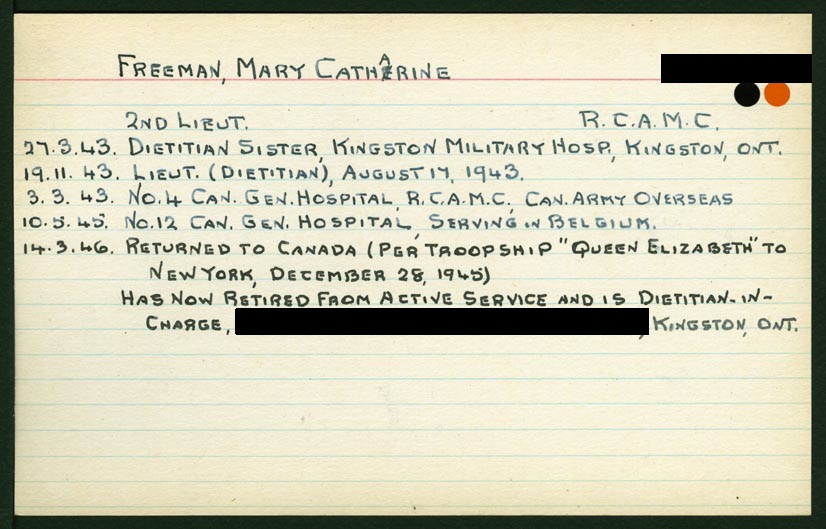 FREEMAN, MARY CATHARINE
2ND LIEUT. R.C.A.M.C.
27.3.43. DIETITIAN SISTER, KINGSTON MILITARY HOSP, KINGSTON, ONT.
19.11.43. LIEUT. (DIETITIAN), AUGUST 17, 1943.
3.3.43. NO.4 CAN. GEN. HOSPITAL, R.C.A.M.C, CAN. ARMY OVERSEAS
10.5.45. NO.12 CAN. GEN. HOSPITAL, SERVING IN BELGIUM.
14.3.46. RETURNED TO CANADA (PER TROOPSHIP "QUEEN ELIZABETH" TO
NEW YORK, DECEMBER 28, 1945)
HAS NOW RETIRED FROM ACTIVE SERVICE AND IS DIETITIAN-IN-
CHARGE, , KINGSTON, ONT.